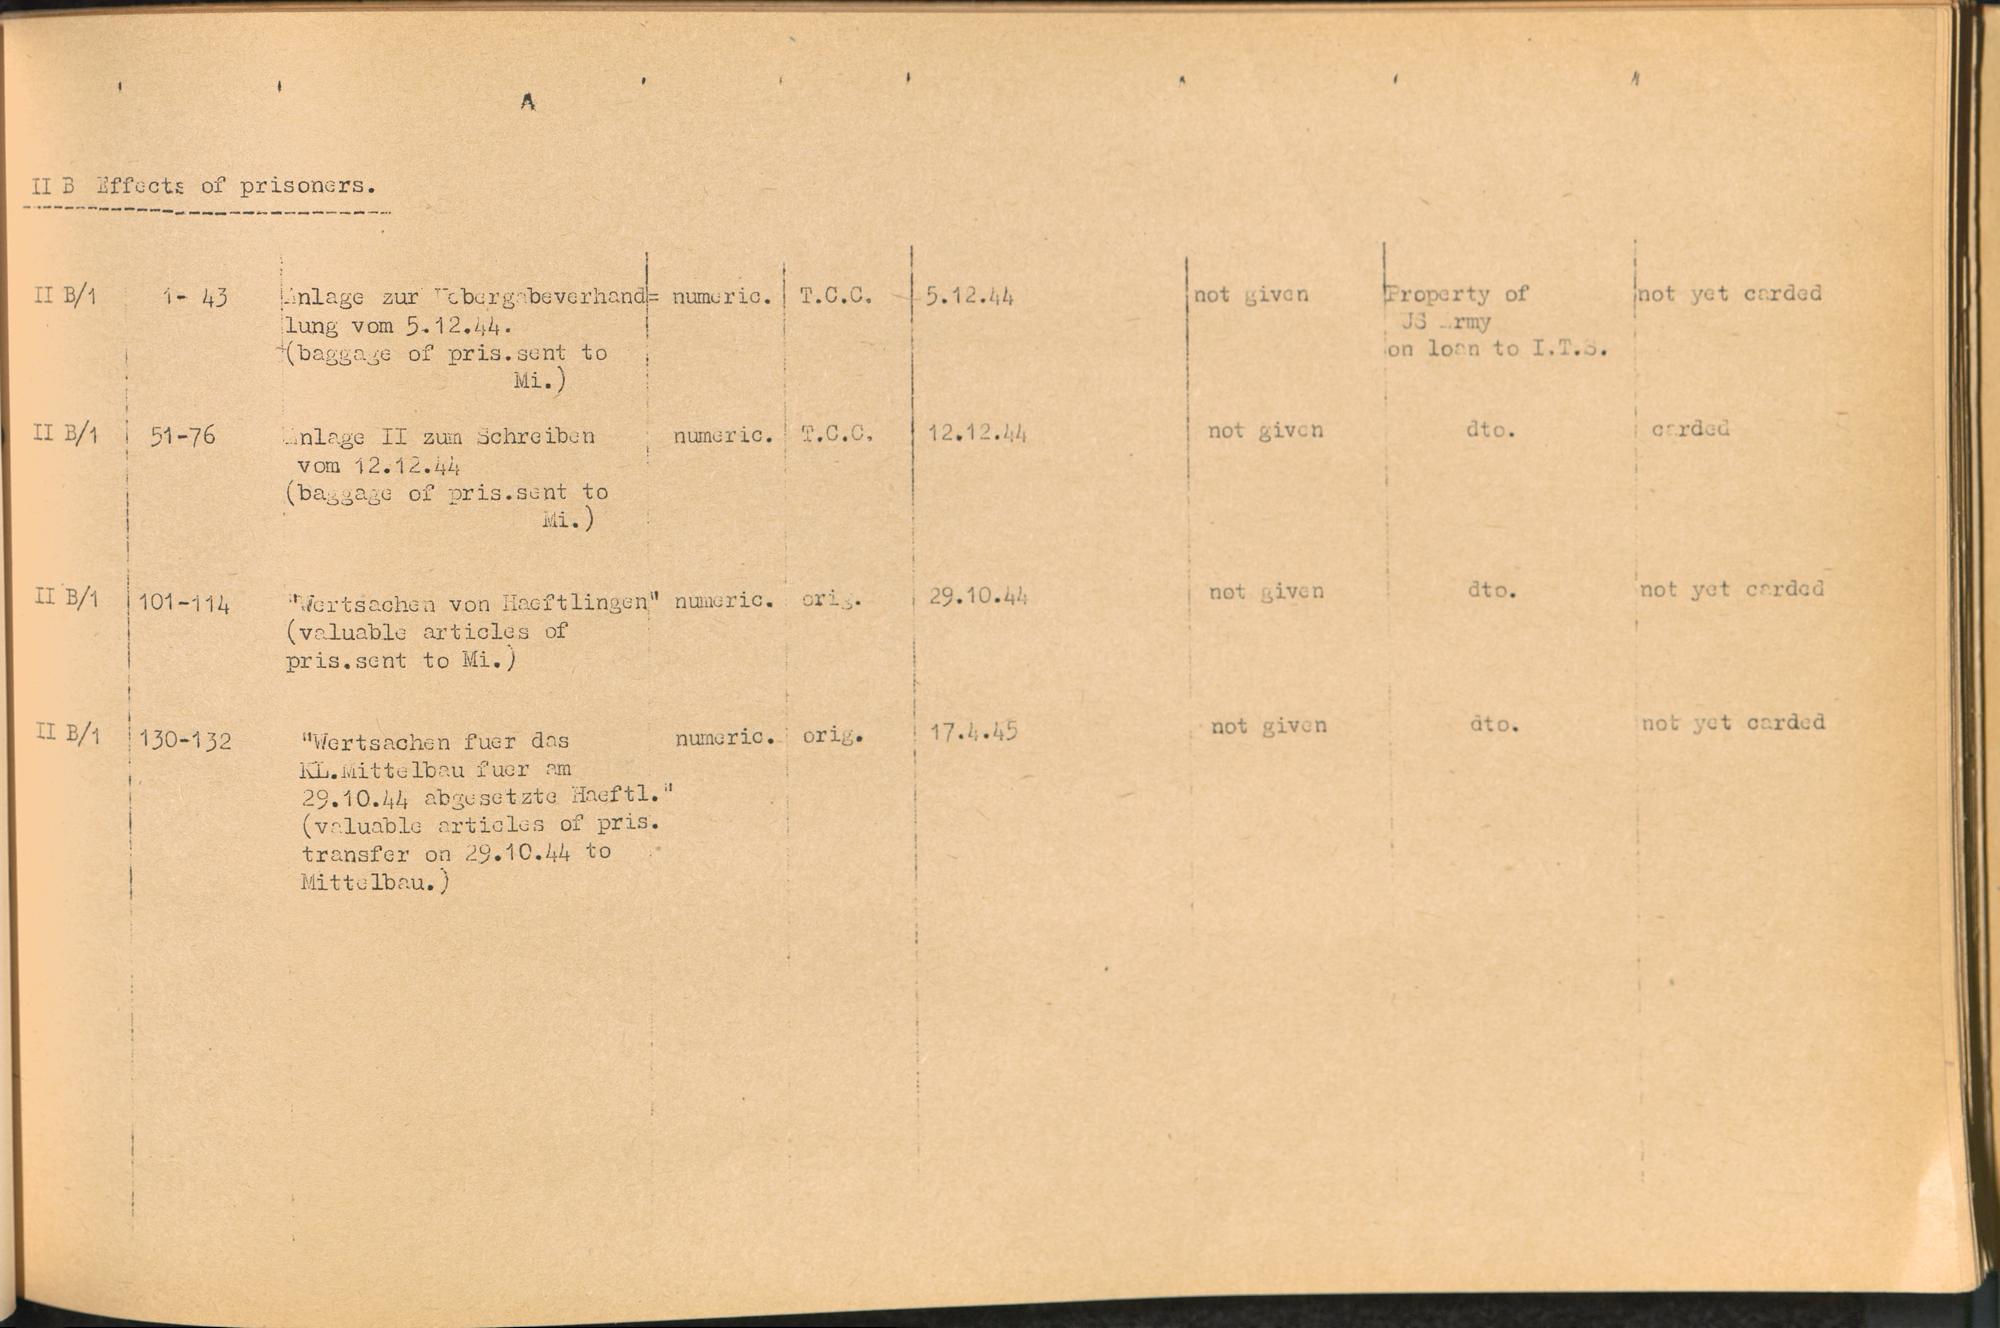 A
II B Effects of prisoners.
II B/1 1- 43 Anlage zur Uebergabeverhand= numeric. T.C.C. 5.12.44 not given Property of not yet carded
lung vom 5.12.44. US Army
(baggage of pris.sent to on loan to I.T.S.
Mi.)
II B/1 51-76 Anlage II zum Schreiben numeric. T.C.C. 12.12.44 not given dto. carded
vom 12.12.44
(baggage of pris.sent to
Mi.)
II B/1 101-114 "Wertsachen von Haeftlingen" numeric. orig. 29.10.44 not given dto. not yet carded
(valuable articles of
pris.sent to Mi.)
II B/1 130-132 "Wertsachen fuer das numeric. orig. 17.4.45 not given dto. not yet carded
KL.Mittelbau fuer am
29.10.44 abgesetzte Haeftl."
(valuable articles of pris.
transfer on 29.10.44 to
Mittelbau.)